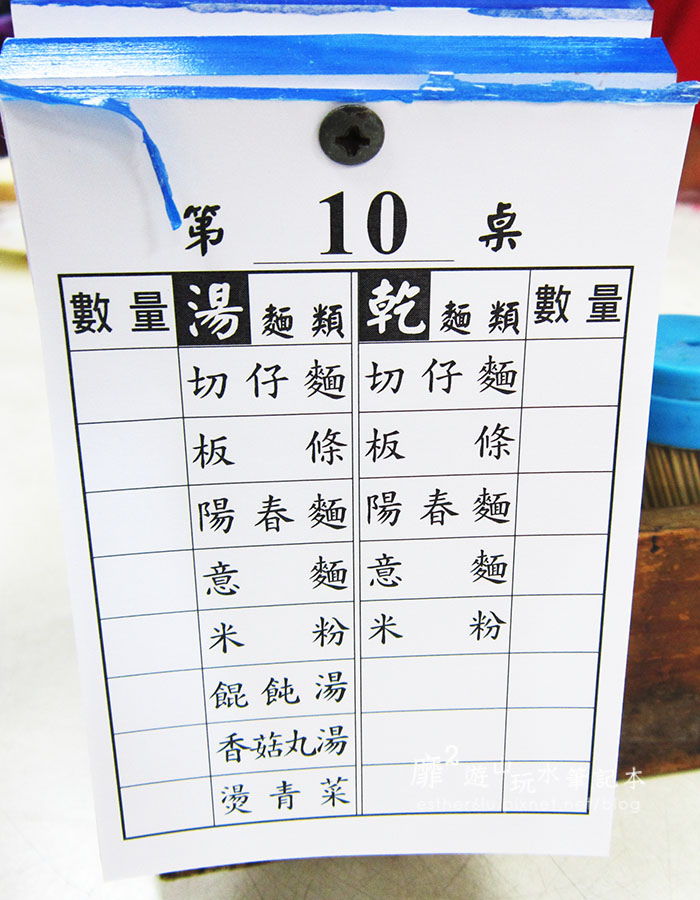 第 10 桌
數量 湯麵類 乾麵類 數量
切仔麵 切仔麵
板條 板條
陽春麵 陽春麵
意麵 意麵
米粉 米粉
餛飩湯
香菇丸湯
燙青菜
靡2遊山玩水筆記本
esther4lu.pixnet.net/blog